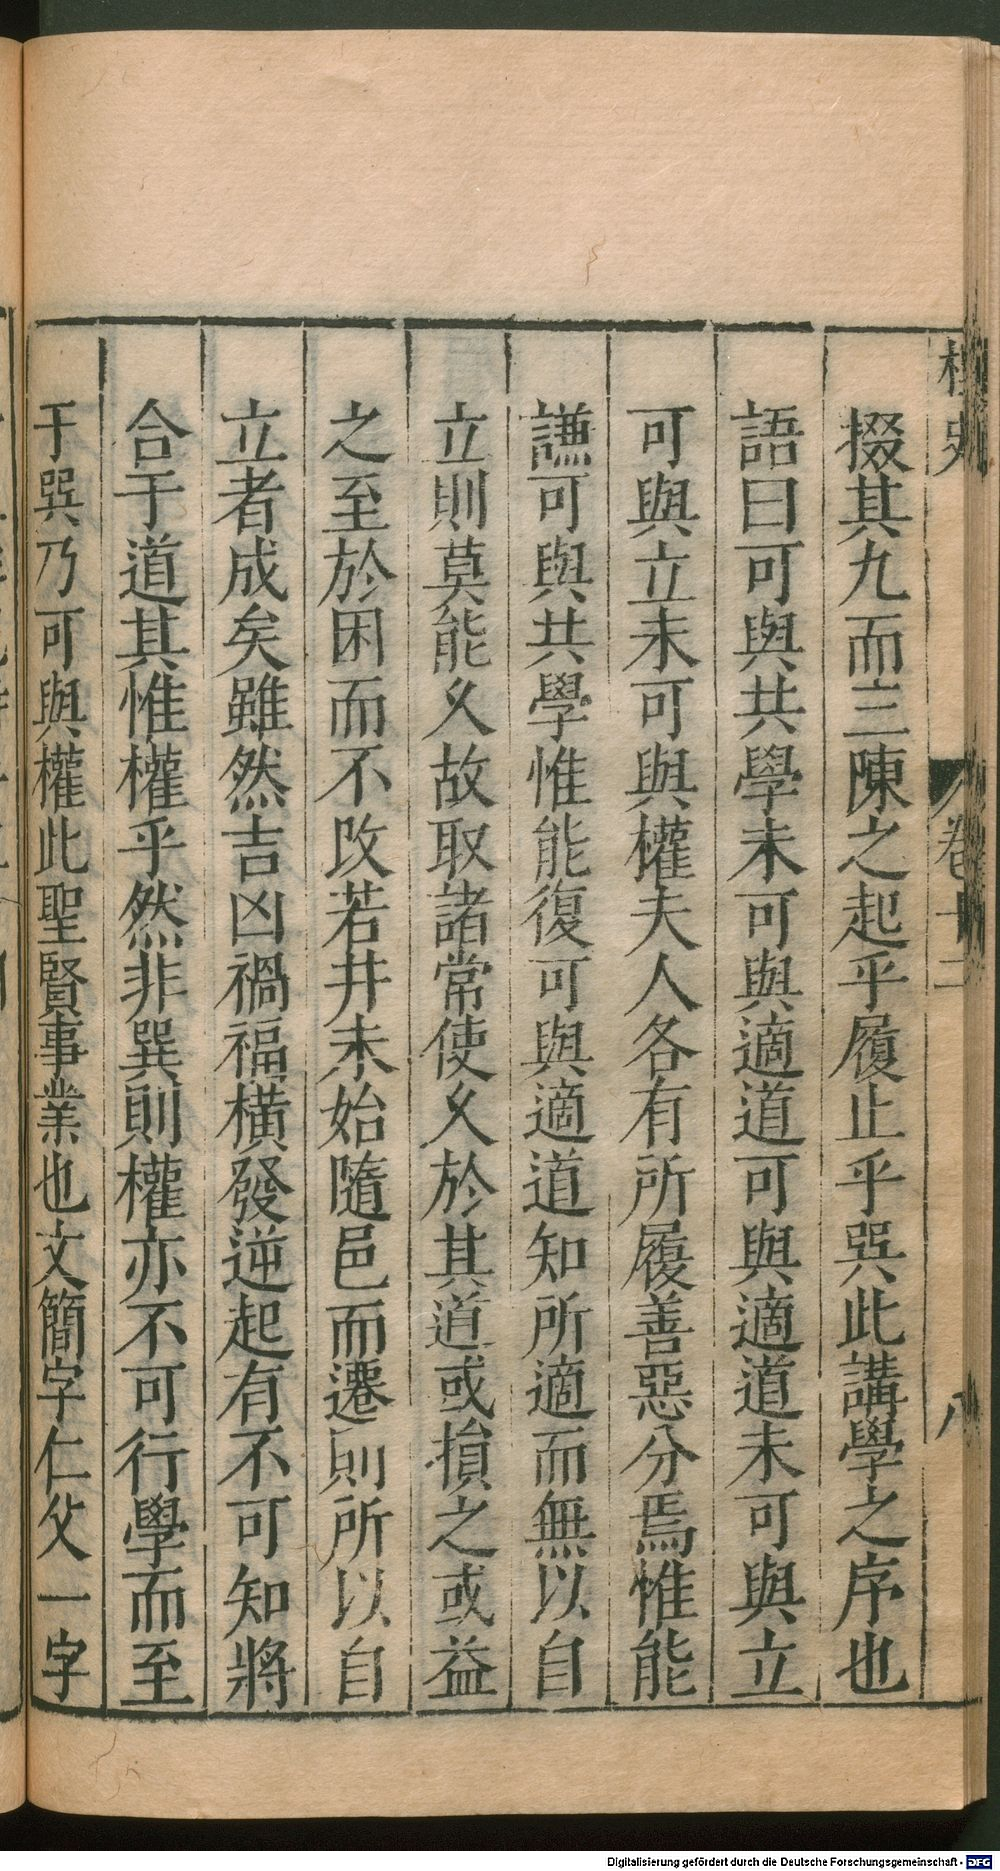 掇其九而三陳之起乎履止乎巽此講學之序也
語曰可與共學未可與適道可與適道未可與立
可與立未可與權夫人各有所履善惡分焉惟能
謙可與共學惟能復可與適道知所適而無以自
立則莫能久故取諸常使久於其道或損之或益
之至於困而不改若井未始隨邑而遷則所以自
立者成矣雖然吉凶禍福橫發逆起有不可知將
合于道其惟權乎然非巽則權亦不可行學而至
于巽乃可與權此聖賢事業也文簡字仁父一字
卷十二
八
Digitalisierung gefördert durch die Deutsche Forschungsgemeinschaft - DFG